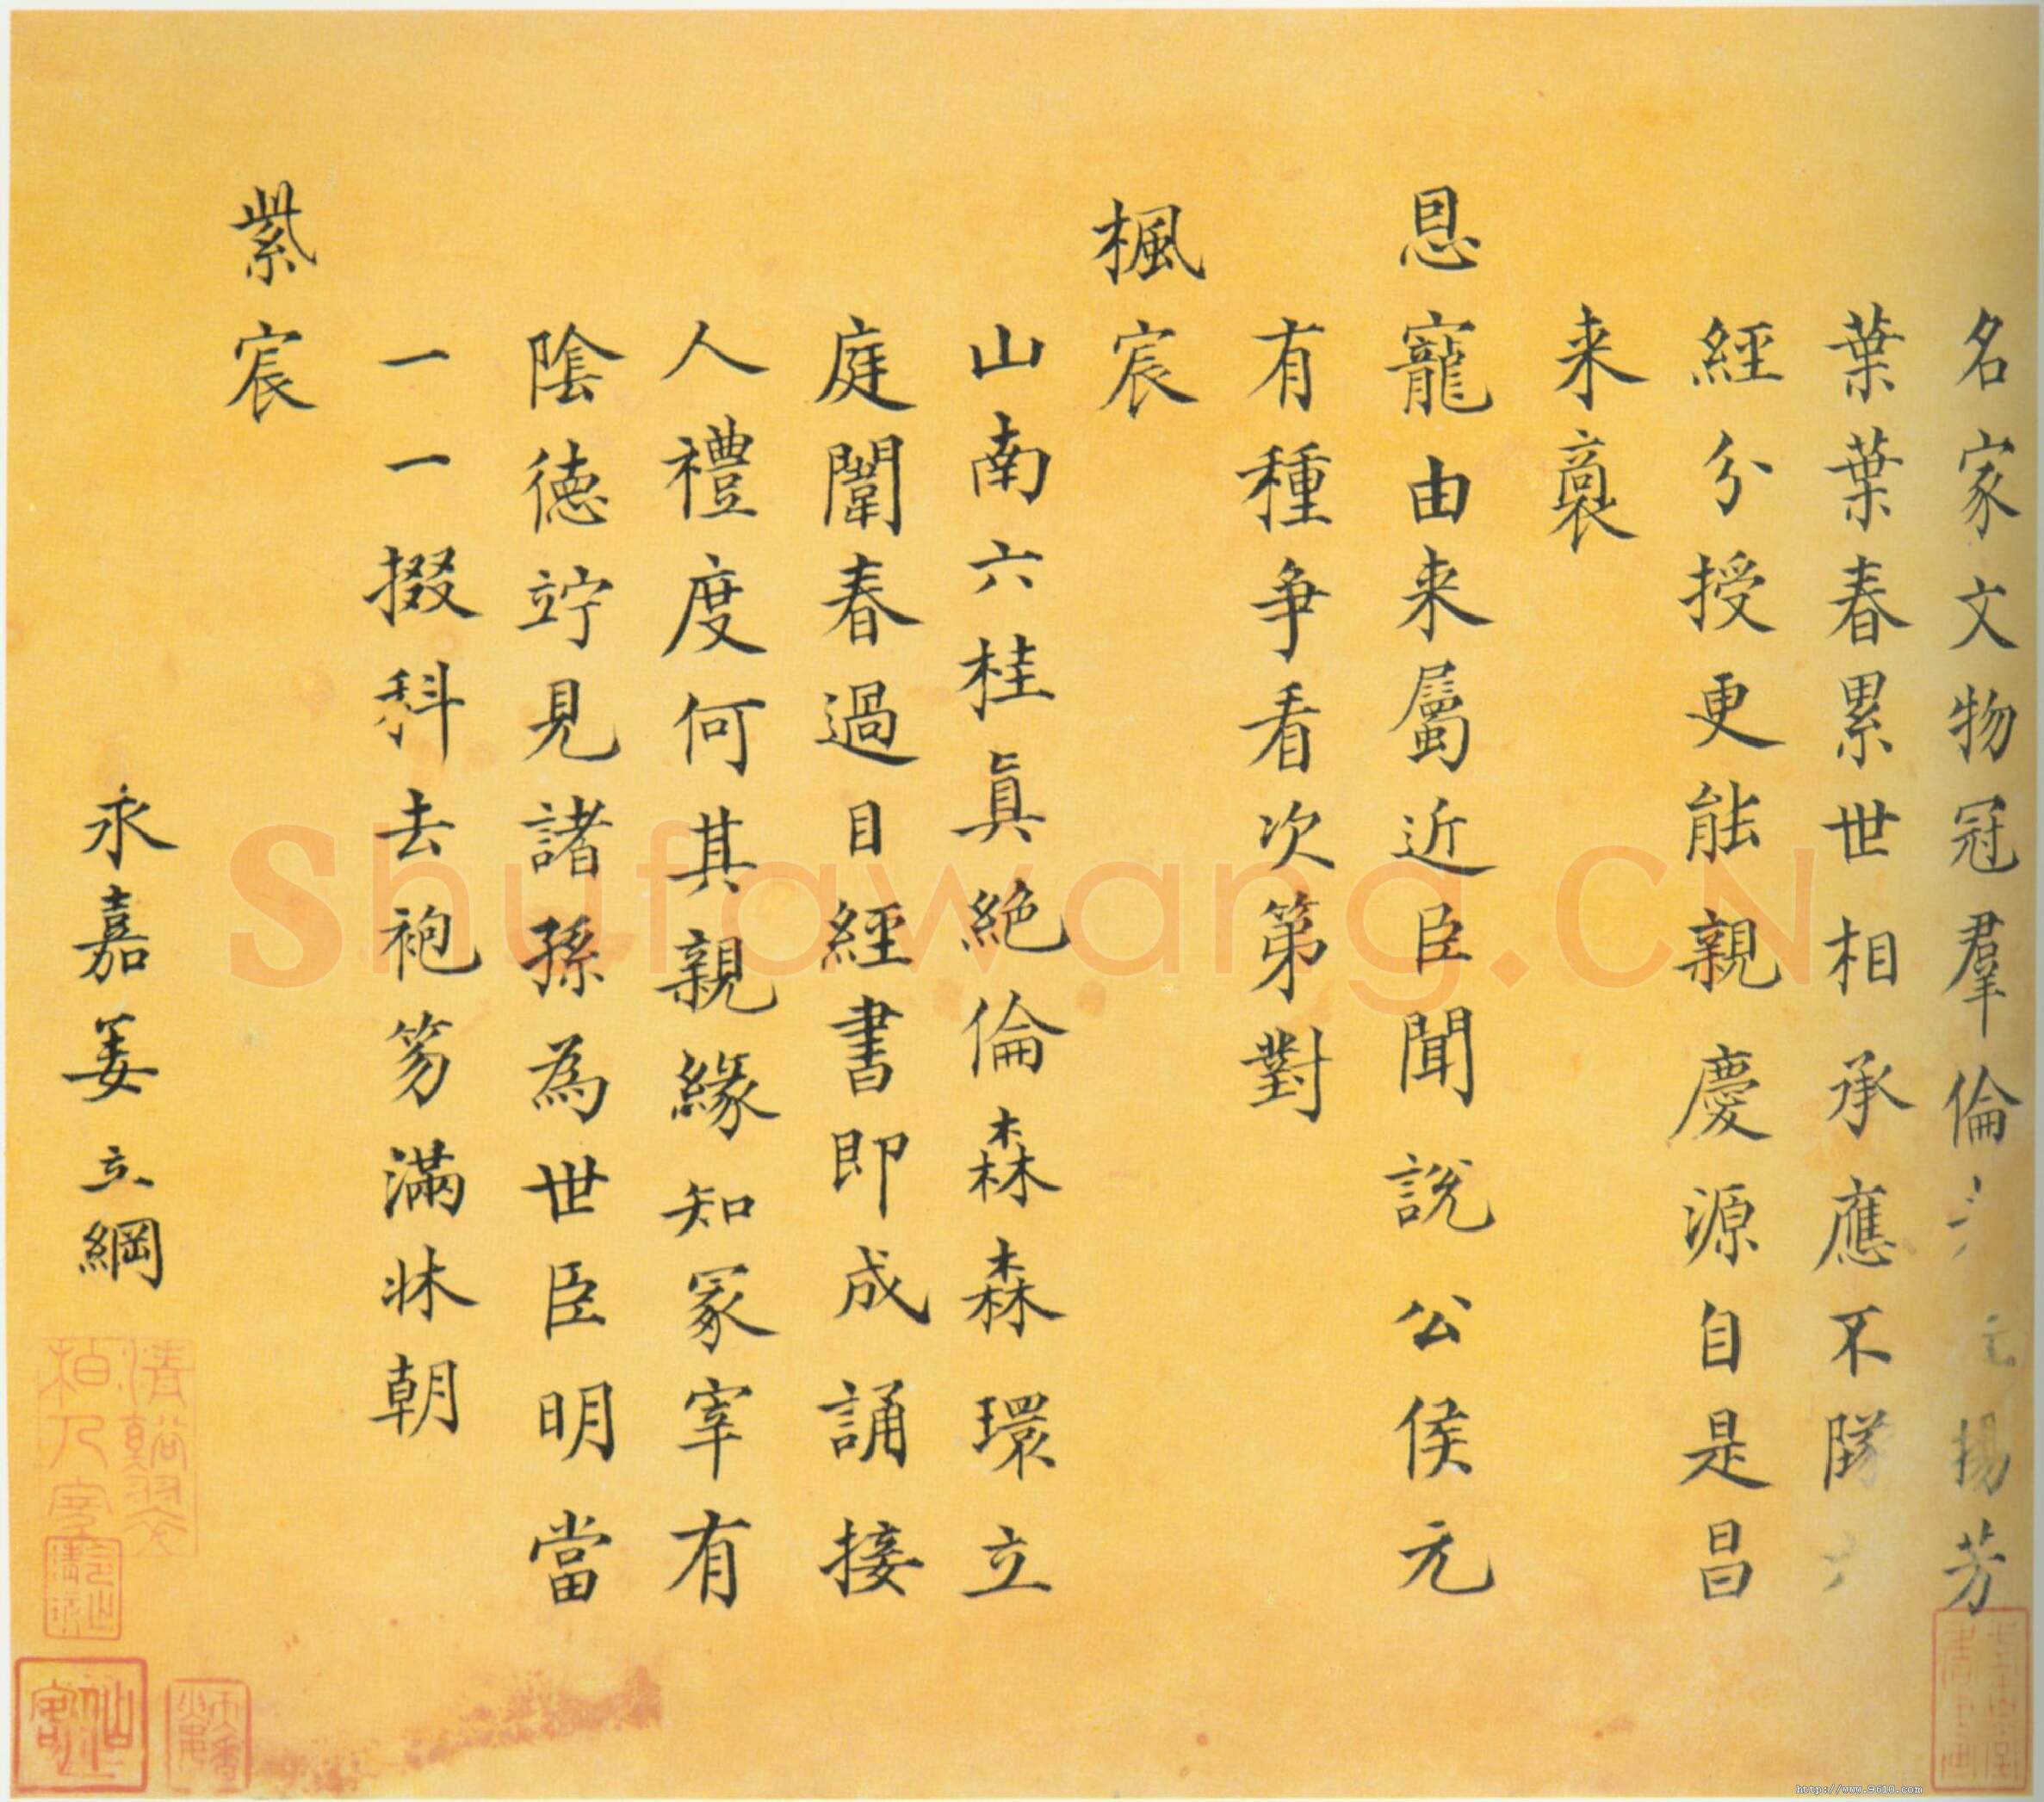 名家文物冠羣倫揚芳
葉葉春累世相承應不隊
經分授更能親慶源自是昌
来裔
恩寵由来屬近臣聞說公侯元
有種爭看次第對
楓宸
山南六桂真絕倫森森環立
庭闈春過目經書即成誦接
人禮度何其親緣知冢宰有
陰德竚見諸孫為世臣明當
一一掇科去袍笏滿牀朝
紫宸
永嘉姜立綱
Shufawang.CN
http://www.9610.com